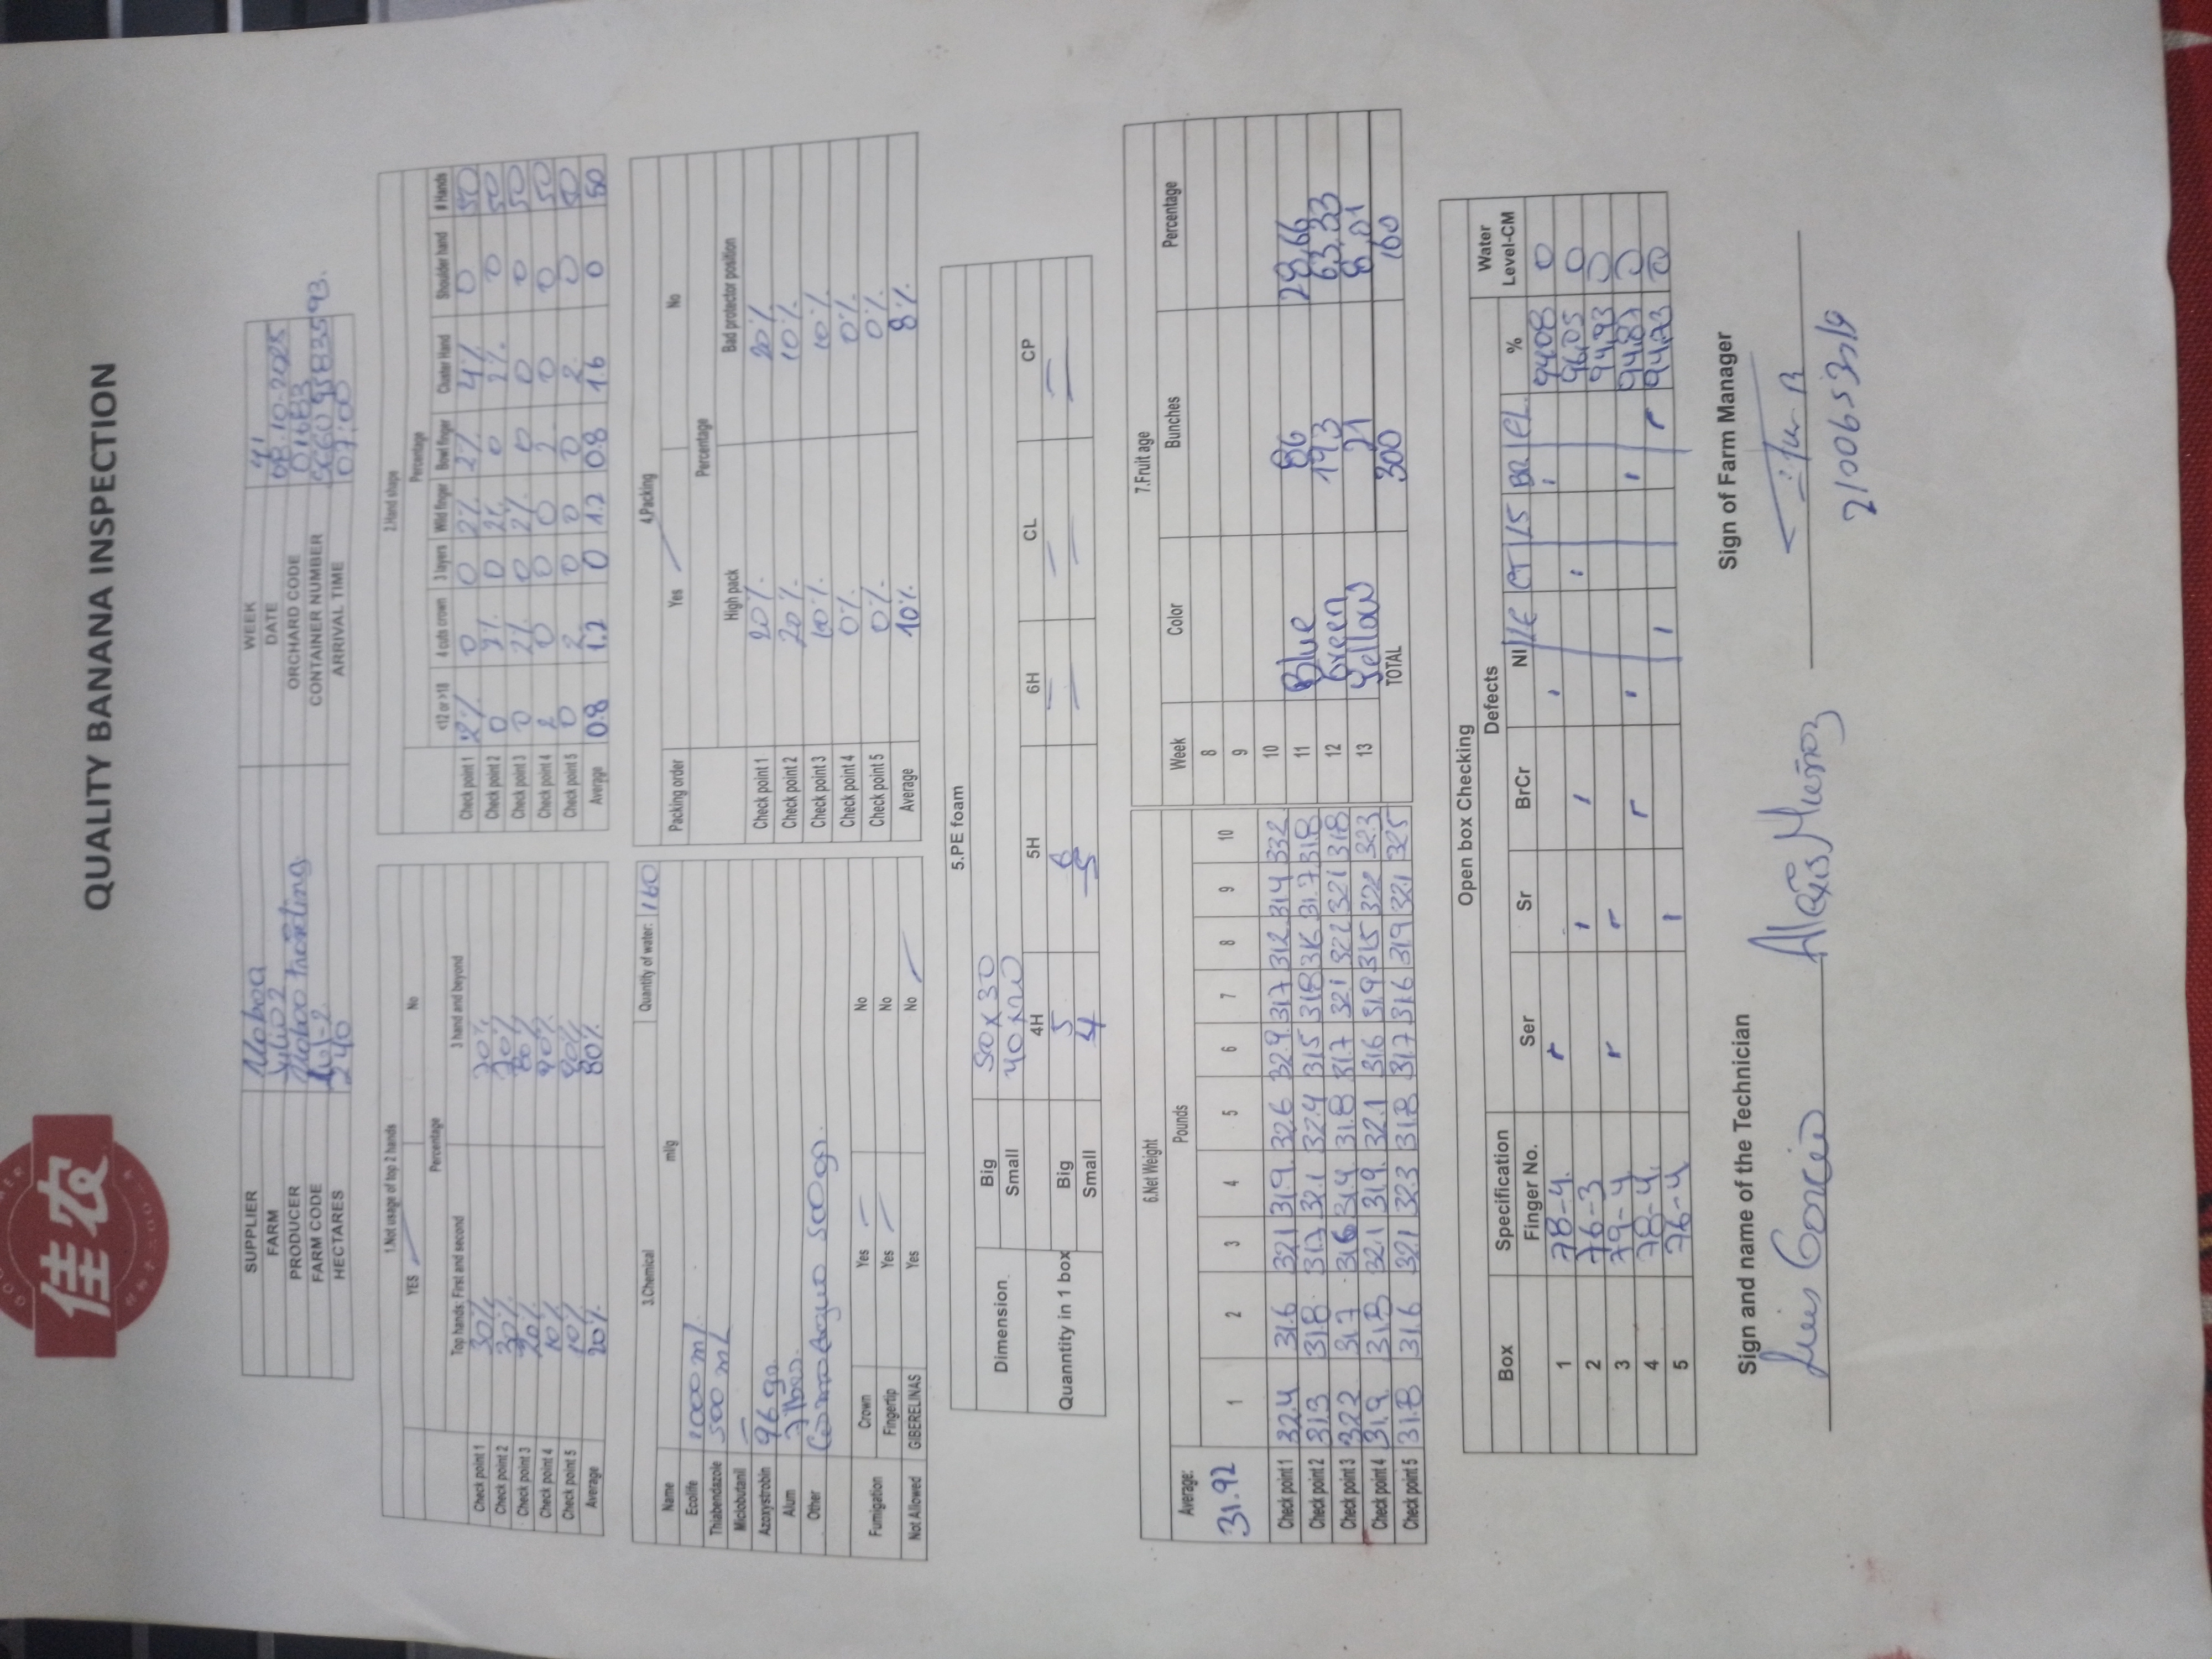 佳农
QUALITY BANANA INSPECTION
SUPPLIER Uoboa WEEK 41
FARM Julio 2 DATE 08.10-2025
PRODUCER Uoboa trading ORCHARD CODE 01683
FARM CODE CONTAINER NUMBER
HECTARES 240 ARRIVAL TIME 07:00
1.Not usage of top 2 hands
YES No
Percentage
Top hands: First and second 3 hand and beyond
Check point 1 30% 70%
Check point 2 30% 70%
Check point 3 20% 80%
Check point 4 10% 90%
Check point 5 10% 90%
Average 20% 80%
2.Hand shape
Percentage
<12 or >18 4 cuts crown 3 layers Wild finger Bowl finger Cluster Hand Shoulder hand # Hands
Check point 1 2% 0 0 2% 2% 4% 0 50
Check point 2 0 2% 0 2% 0 2% 0 50
Check point 3 0 2% 0 2% 0 0 0 50
Check point 4 2 0 0 0 2 0 0 50
Check point 5 0 2 0 0 0 2 0 50
Average 0.8 1.2 0 1.2 0.8 1.6 0 50
3.Chemical Quantity of water: 160
Name ml/g
Ecolife 1000 ml.
Thiabendazole 500 mL
Miclobutanil —
Azoxystrobin 96 go.
Alum 7 lbas.
Other 500 gr.
Fumigation Crown Yes No
Fingertip Yes No
Not Allowed GIBERELINAS Yes No
4.Packing
Packing order Yes No
Percentage
High pack Bad protector position
Check point 1 20% 20%
Check point 2 20% 10%
Check point 3 10% 10%
Check point 4 0% 0%
Check point 5 0% 0%
Average 10% 8%
5.PE foam
Dimension Big 50x30
Small 40x20
4H 5H 6H CL CP
Quanntity in 1 box Big 5 6 — — —
Small 4 5 — — —
6.Net Weight
Average: Pounds
31.92 1 2 3 4 5 6 7 8 9 10
Check point 1 32.4 31.6 321 31.9. 32.6 32.9. 317 312 314 332
Check point 2 313 31.8 317 32.1 32.4 315 318 316 31.7 318
Check point 3 322 317 316 31.4 31.8 31.7 321 322 321 318
Check point 4 31.9. 31.8 32.1 319. 32.1 316 319 315 322 323
Check point 5 31.8 31.6 321 323 318 317 316 319 321 325
7.Fruit age
Week Color Bunches Percentage
8
9
10
11 Blue 86 28,66
12 Green 193 63,33
13 Yellow 21 8,01
TOTAL 300 100
Open box Checking
Box Specification Defects Water
Finger No. Ser Sr BrCr NI LE CT LS BR EL. % Level-CM
1 78-4. 9408 0
2 76-3 96,05 0
3 79-4 94,93 0
4 78-4. 94,87 0
5 76-4 94,73 0
Sign and name of the Technician Sign of Farm Manager
Luis Garcia Alexis Muñoz